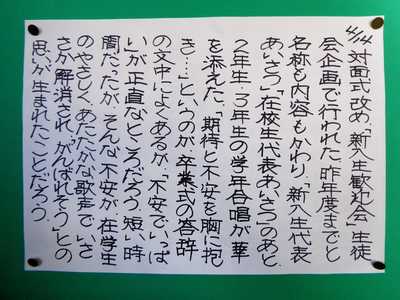 4/14 対面式改め、「新入生歓迎会」生徒
会企画で行われた。昨年度までと
名称も内容もかわり、「新入生代表
あいさつ」「在校生代表あいさつ」のあと、
2年生・3年生の学年合唱が華
を添えた。「期待と不安を胸に抱
き…」というのが卒業式の答辞
の文中によくあるが、「不安でいっぱ
い」が正直なところだろう。短い時
間だったが、そんな不安が、在学生
のやさしく、あたたかな歌声で、いさ
さか解消され、がんばれそう」との
思いが生まれたことだろう。